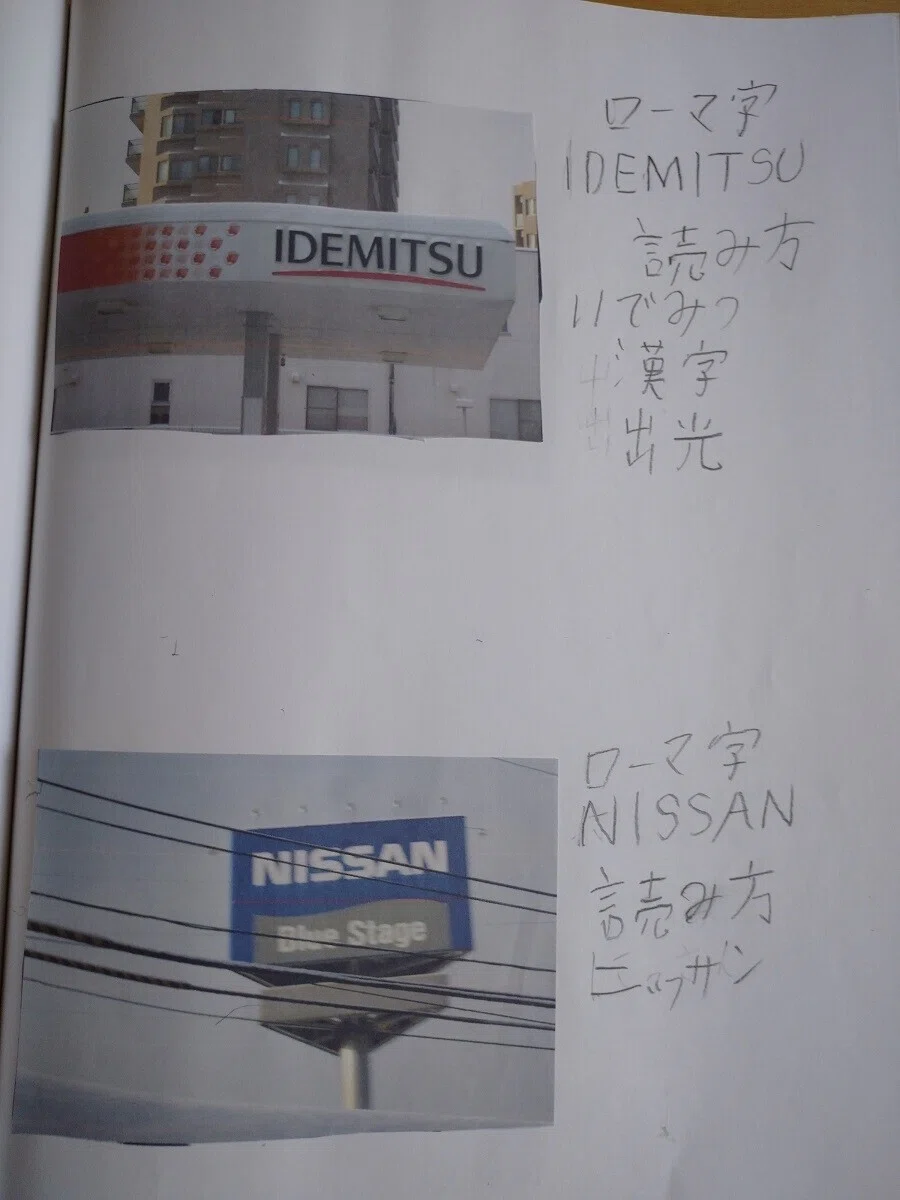 IDEMITSU
ローマ字
IDEMITSU
読み方
いでみつ
漢字
出光
NISSAN
Blue Stage
ローマ字
NISSAN
読み方
ニッサン